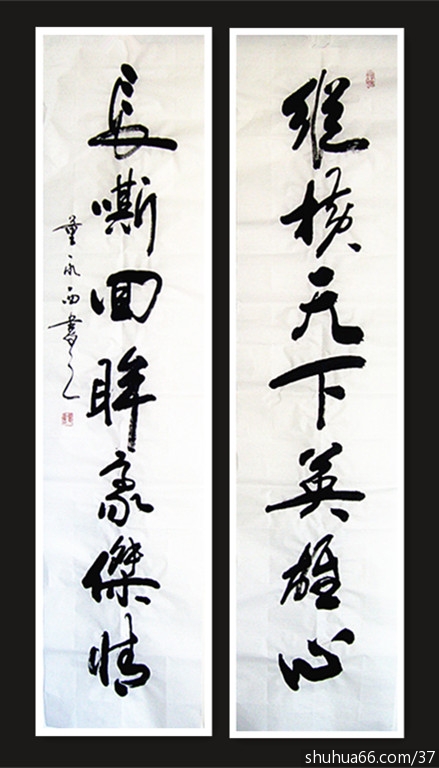 縱橫天下英雄心
長嘶回眸豪傑情
董永西書之
shuhua66.com/37